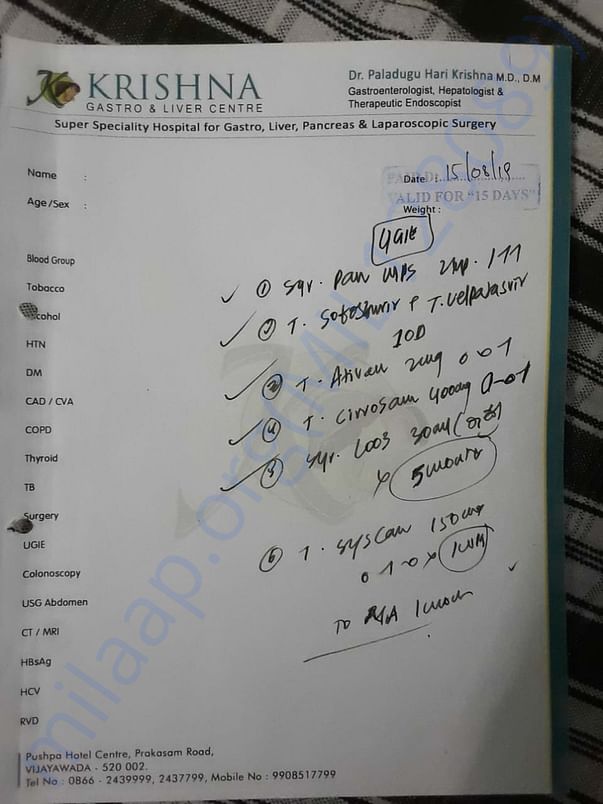 KRISHNA
GASTRO & LIVER CENTRE
Dr. Paladugu Hari Krishna M.D., D.M
Gastroenterologist, Hepatologist &
Therapeutic Endoscopist
Super Speciality Hospital for Gastro, Liver, Pancreas & Laparoscopic Surgery
Name :
Date : 15/08/19
VALID FOR "15 DAYS"
Age/Sex :
Weight :
UGIE
Blood Group
① Syr. pan MPS 2tsp. 111
Tobacco
② T. Sofosbuvir + T. Velpatasvir
10D
cohol
HTN
③ T. Ativan 2mg 0 0 1
DM
④ T. Cirrosam 400mg 0-0-1
CAD / CVA
⑤ Syr. Looz 30ml
COPD
Thyroid
TB
Surgery
⑥ T. Syscan 150mg
UGIE
0 1-0 x
Colonoscopy
USG Abdomen
1 month
CT / MRI
HBsAg
HCV
RVD
Pushpa Hotel Centre, Prakasam Road,
VIJAYAWADA - 520 002.
Tel No : 0866 - 2439999, 2437799, Mobile No : 9908517799
milaap.org